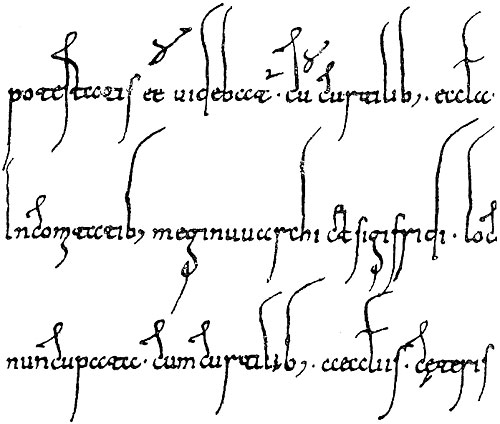 potestatis et uidebat · cū curtilib, · eccla ·
In comitatib, meginuuarchi et sigifridi · loc
nuncupate · cum curtilib, · aecclīis · cęteris